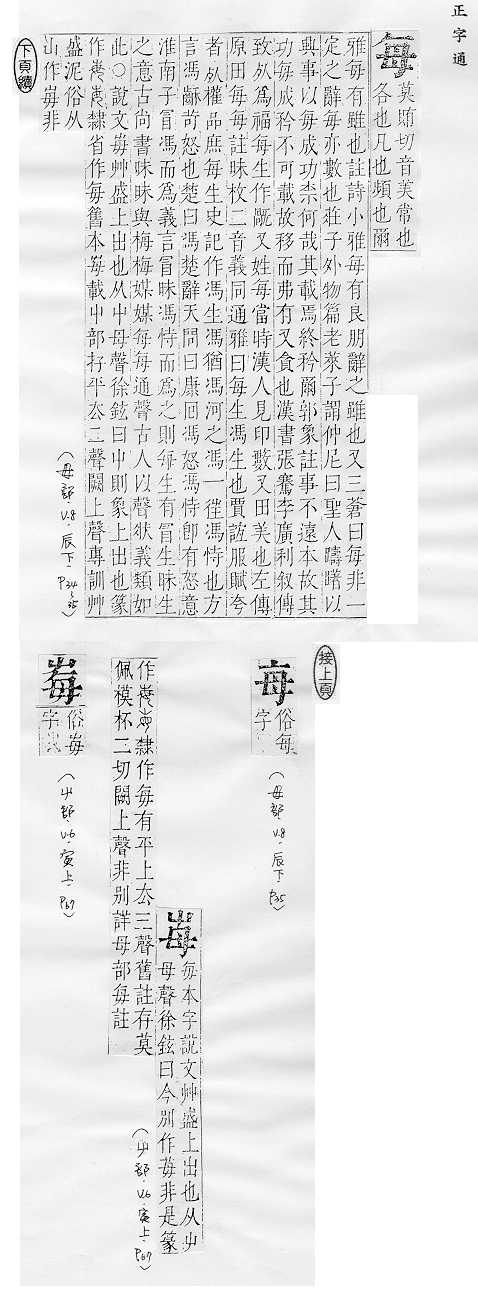 正字通
每
莫賄切音美常也
各也凡也頻也爾
雅每有雖也註詩小雅每有良朋辭之雖也又三蒼曰每非一
定之辭每亦數也莊子外物篇老萊子謂仲尼曰聖人躊躇以
興事以每成功柰何哉其載焉終矜爾郭象註事不遠本故其
功每成矜不可載故移而弗有又貪也漢書張騫李廣利叙傳
致死爲福每生作旤又姓每當時漢人見印藪又田美也左傳
原田每每註昧枚二音義同通雅曰每生馮生也賈誼服賦夸
者死權品庶每生史記作馮生馮猶馮河之馮一徃馮恃也方
言馮齘苛怒也楚曰馮楚辭天問曰康回馮怒馮恃卽有怒意
淮南子冒馮而爲義言冒昧馮恃而爲之則每生有冒生昧生
之意古尚書昧昧與梅梅媒媒每每通聲古人以聲狀義類如
此○說文每艸盛上出也从屮母聲徐鉉曰屮則象上出也篆
隸省作每舊本每載屮部好平去二聲闕上聲專訓艸
盛泥俗从
山作每非
下頁續
(毋部.V.8.辰下.P34~35)
接上頁
俗每
字
(毋部.V.8.辰下.P35)
每本字說文艸盛上出也从屮
母聲徐鉉曰今別作莓非是篆
隸作每有平上去三聲舊註存莫
佩模杯二切闕上聲非別詳母部每註
(屮部.V.6.寅上.P67)
俗每
字
(屮部.V.6.寅上.P67)